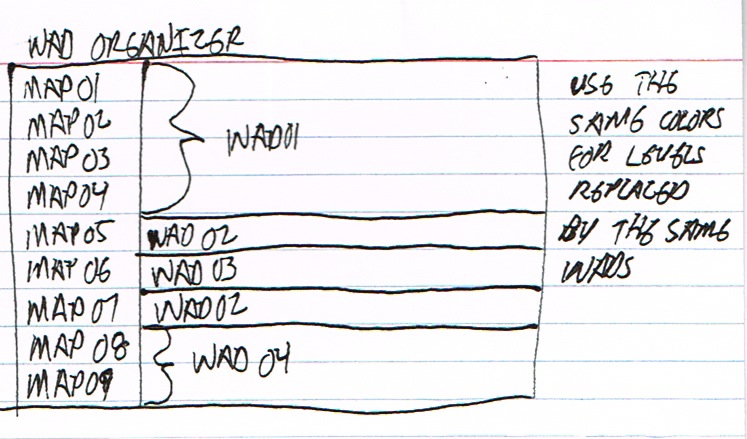 WAD ORGANIZER
MAP 01
MAP 02
MAP 03
MAP 04
MAP 05
MAP 06
MAP 07
MAP 08
MAP 09
WAD01
WAD 02
WAD 03
WAD02
WAD 04
USE THE
SAME COLORS
FOR LEVELS
REPLACED
BY THE SAME
WADS